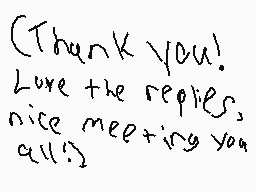 (Thank you!
Love the replies,
nice meeting you
all!)